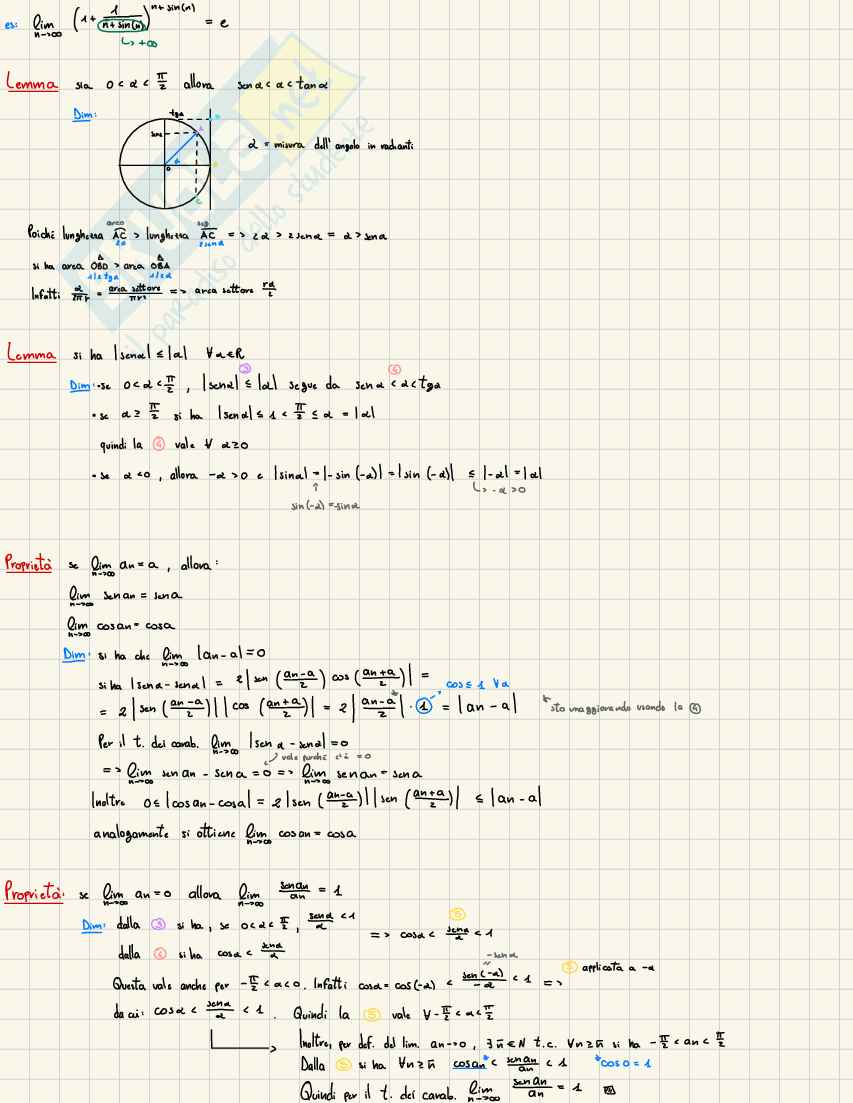 es: lim n->∞ (1 + 1/(n+sin(n)))^(n+sin(n)) = e
↳ +∞
Lemma sia 0 < α < π/2 allora sen α < α < tan α
Dim:
tgα
senα
α
0
α = misura dell'angolo in radianti
arco seg
Poiché lunghezza AC > lunghezza AC => 2α > 2senα = α > senα
2α 2senα
si ha area OBD > area OBA
1/2 tgα 1/2 α
Infatti α/2πr = area settore/πr² => area settore rα/2
Lemma si ha |senα| ≤ |α| ∀α∈R
③ ④
Dim: •se 0<α<π/2, |senα| ≤ |α| segue da senα < α < tgα
• se α ≥ π/2 si ha |senα| ≤ 1 < π/2 ≤ α = |α|
quindi la ④ vale ∀ α≥0
• se α<0, allora -α>0 e |sinα| = |-sin(-α)| = |sin(-α)| ≤ |-α| = |α|
↑ ↳ -α>0
sin(-α) = -sinα
Proprietà se lim n->∞ an = a, allora:
lim n->∞ sen an = sen a
lim n->∞ cos an = cos a
Dim: si ha che lim n->∞ |an-a| = 0
si ha |senα - senα| = 2|sen((an-a)/2) cos((an+a)/2)| =
cos ≤ 1 ∀α
= 2|sen((an-a)/2)||cos((an+a)/2)| = 2|(an-a)/2|* · 1 = |an-a| * sto maggiorando usando la ④
Per il t. dei carab. lim n->∞ |sen α - senα| = 0
vale purché c'è = 0
=> lim n->∞ sen an - sen a = 0 => lim n->∞ sen an = sen a
Inoltre 0 ≤ |cos an - cos a| = 2|sen((an-a)/2)||sen((an+a)/2)| ≤ |an-a|
analogamente si ottiene lim n->∞ cos an = cos a
Proprietà: se lim n->∞ an = 0 allora lim n->∞ sen an/an = 1
Dim: dalla ③ si ha, se 0<α<π/2, senα/α < 1
⑤
=> cosα < senα/α < 1
dalla ④ si ha cosα < senα/α
-senα
Questa vale anche per -π/2 < α < 0. Infatti cosα = cos(-α) < sen(-α)/-α < 1 => ⑤ applicata a -α
da cui: cosα < senα/α < 1. Quindi la ⑤ vale ∀ -π/2 < α < π/2
Inoltre, per def. del lim. an->0, ∃ n̄ ∈ N t.c. ∀n≥n̄ si ha -π/2 < an < π/2
Dalla ⑤ si ha ∀n≥n̄ cos an* < sen an/an < 1 *cos 0 = 1
Quindi per il t. dei carab. lim n->∞ sen an/an = 1
il paradiso dello studente